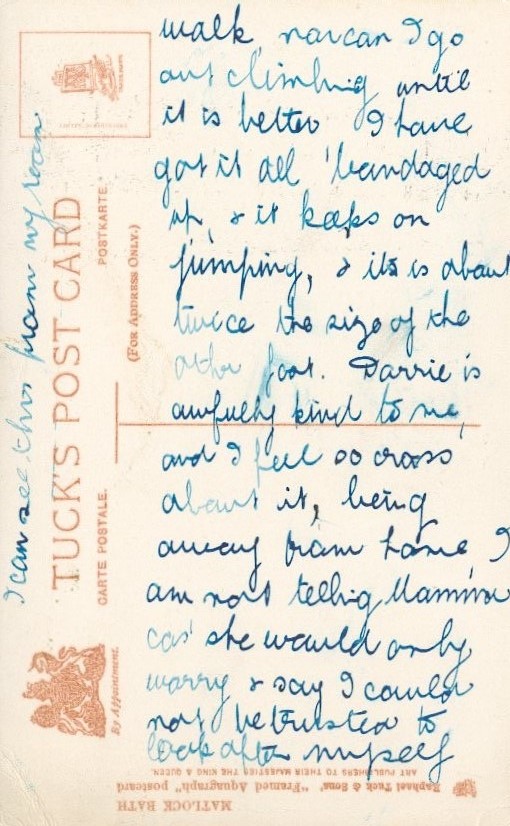 walk, nor can I go
out climbing until
it is better I have
got it all 'bandaged
up, & it keeps on
jumping, & its is about
twice the size of the
other foot. Darrie is
awfully kind to me,
and I feel so cross
about it, being
away from home, I
am not telling Mamma
cos' she would only
worry & say I could
not be trusted to
look after myself
I can see this from my room
TUCK'S POST CARD
CARTE POSTALE.
POSTKARTE
(FOR ADDRESS ONLY.)
By Appointment.
MATLOCK BATH
Raphael Tuck & Sons' "Framed Aquagraph" postcard
ART PUBLISHERS TO THEIR MAJESTIES THE KING & QUEEN.